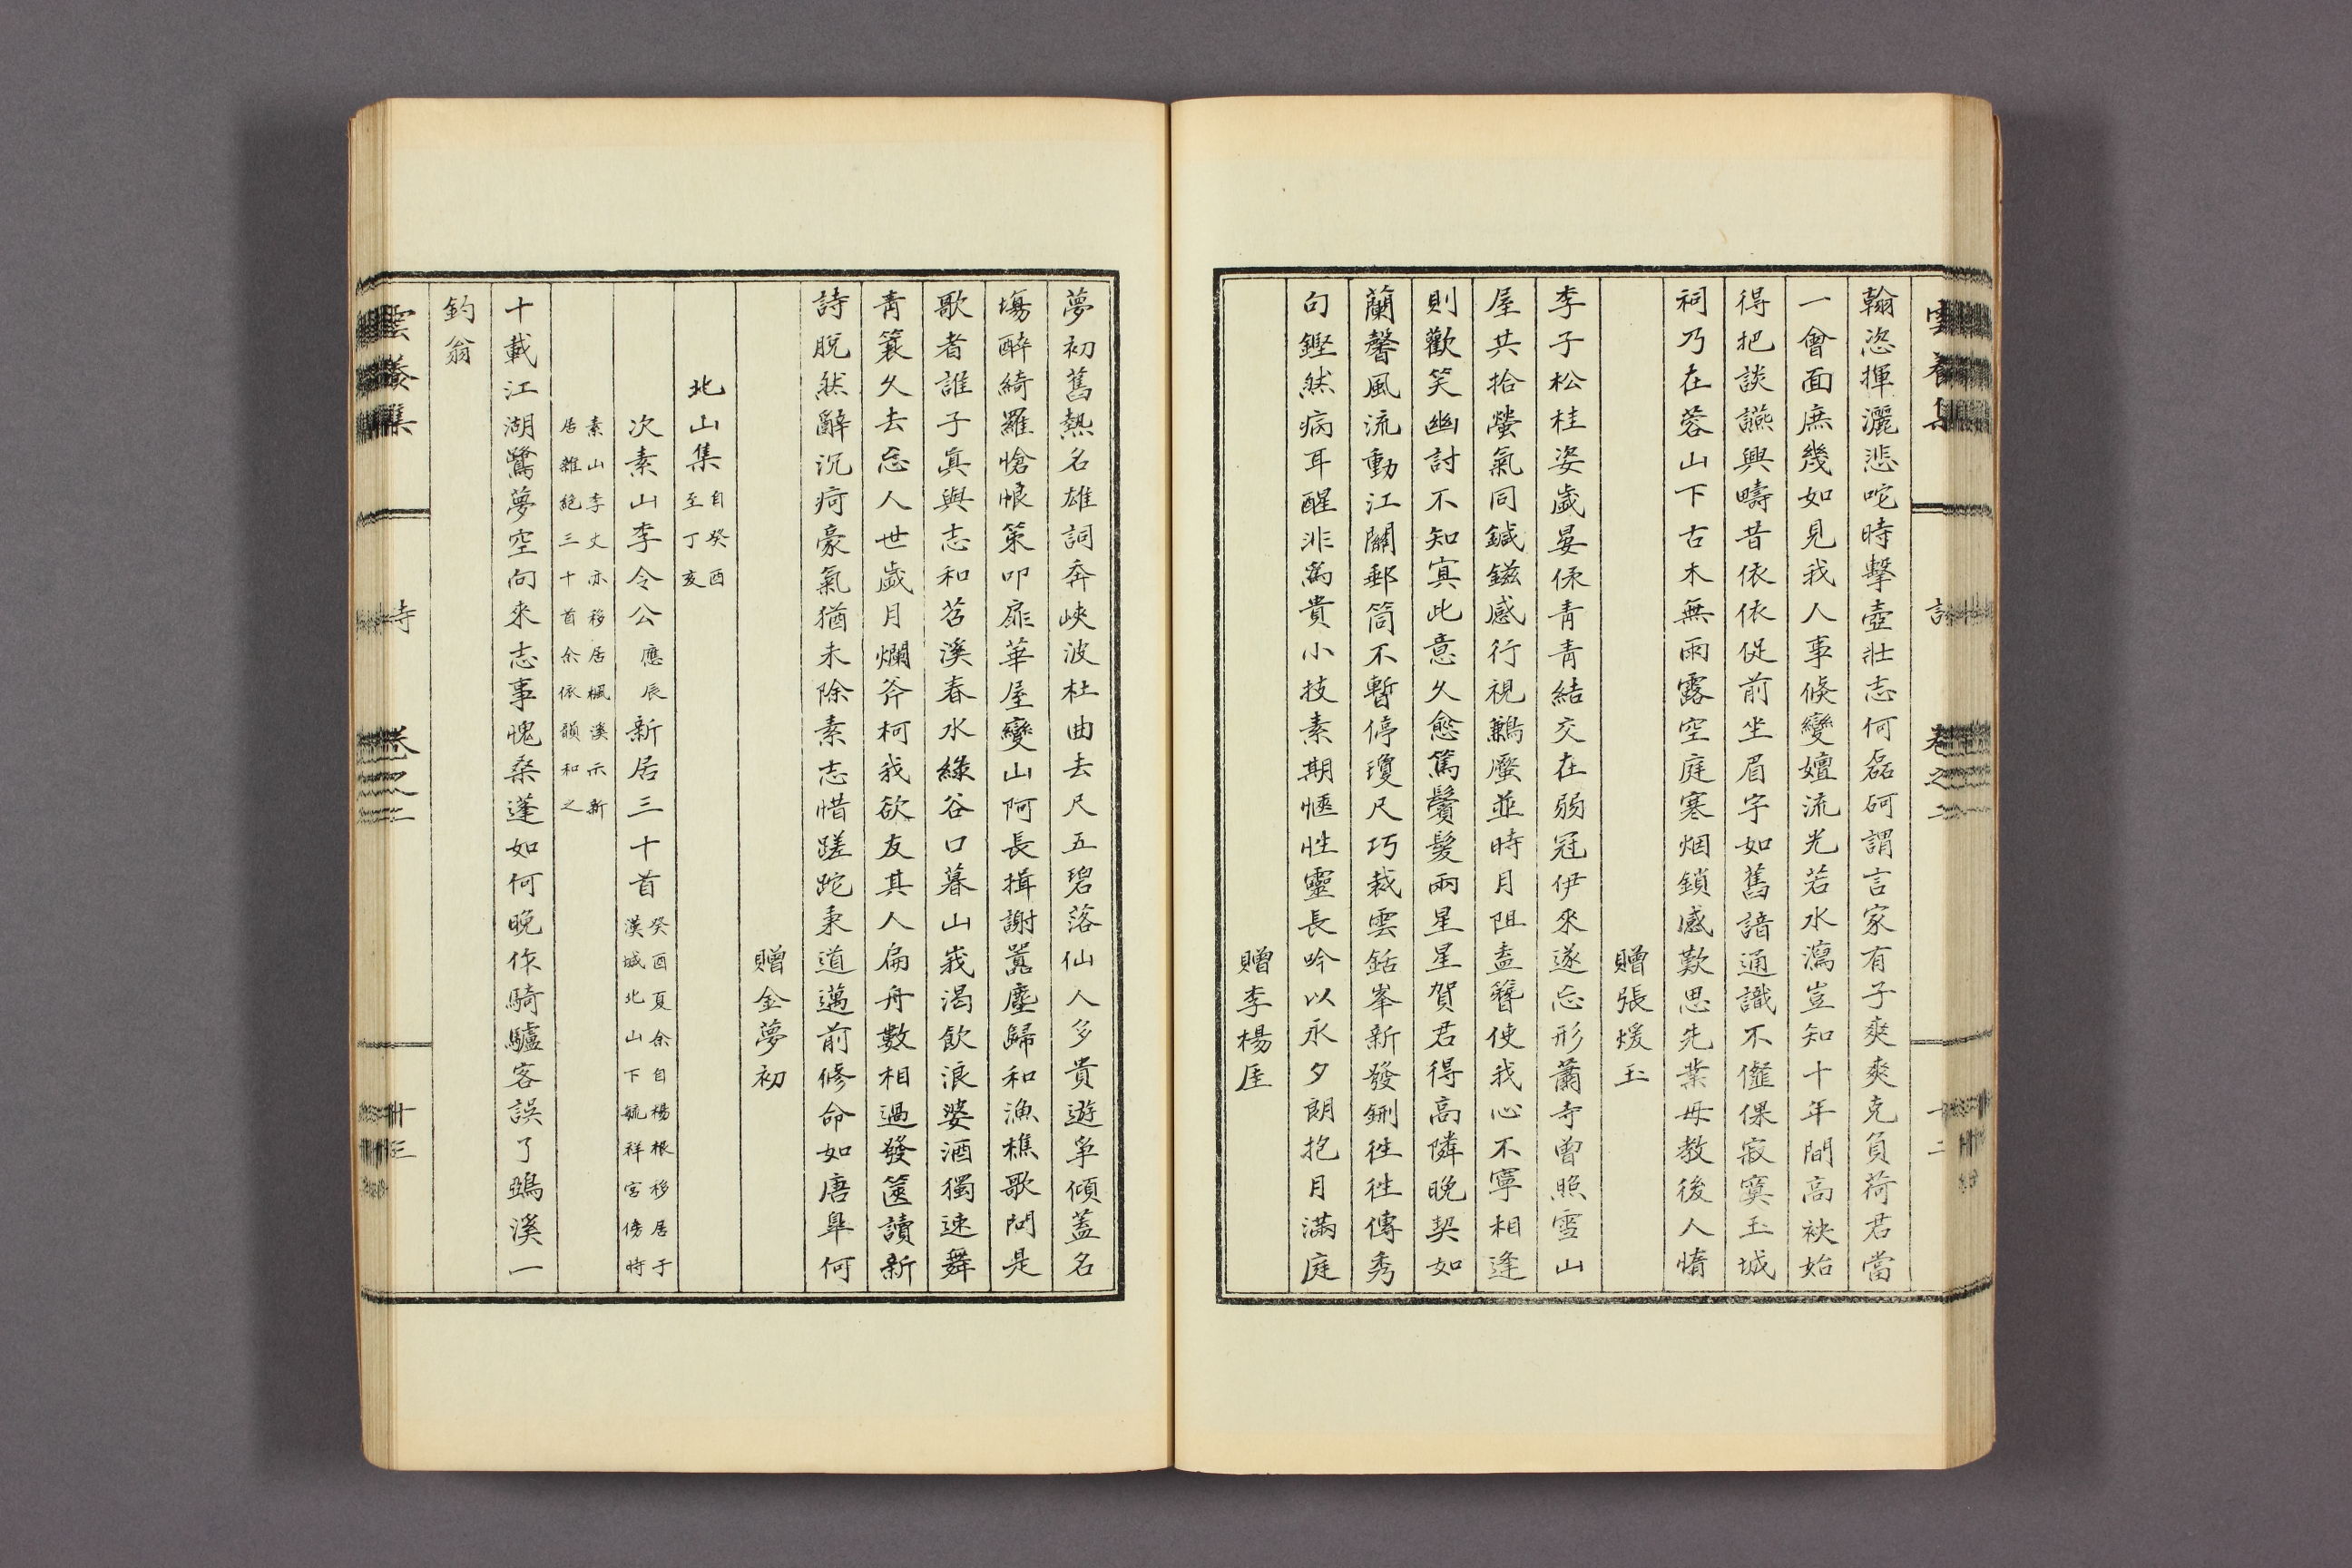 翰恣揮灑悲咤時擊壺壯志何磊砢謂言家有子爽爽克負荷君當
一會面庶幾如見我人事倏變嬗流光若水瀉豈知十年間高袂始
得把談讌興疇昔依依促前坐眉宇如舊諳通識不儱倮寂寞玉城
祠乃在蓉山下古木無雨露空庭寒烟鎖感歎思先業毋教後人惰
贈張煖玉
李子松桂姿歲晏保青青結交在弱冠伊來遂忘形蕭寺曾照雪山
屋共拾螢氣同鍼鎡感行視鶼蟨並時月阻盍簪使我心不寧相逢
則歡笑幽討不知寘此意久愈篤鬢髮兩星星賀君得高隣晚契如
蘭馨風流動江關郵筒不暫停瓊尺巧裁雲銛峯新發鉶徃徃傳秀
句鏗然病耳醒非爲貴小技素期愜性靈長吟以永夕朗抱月滿庭
贈李楊厓
夢初舊熱名雄詞奔峽波杜曲去尺五碧落仙人多貴遊爭傾蓋名
塲醉綺羅愴恨策叩扉華屋變山阿長揖謝囂塵歸和漁樵歌問是
歌者誰子眞與志和苕溪春水綠谷口暮山峩渴飲浪婆酒獨速舞
青簑久去忘人世歲月爛斧柯我欲友其人扁舟數相過發篋讀新
詩脫然辭沉疴豪氣猶未除素志惜蹉跎秉道邁前修命如唐皐何
贈金夢初
北山集 自癸酉至丁亥
次素山李令公應辰新居三十首 癸酉夏余自楊根移居于漢城北山下毓祥宮傍時
素山李丈亦移居楓溪示新居雜絶三十首余依韻和之
十載江湖鷺夢空向來志事愧桑蓬如何晚作騎驢客誤了鵶溪一
釣翁
雲養集 詩 卷之二 十三